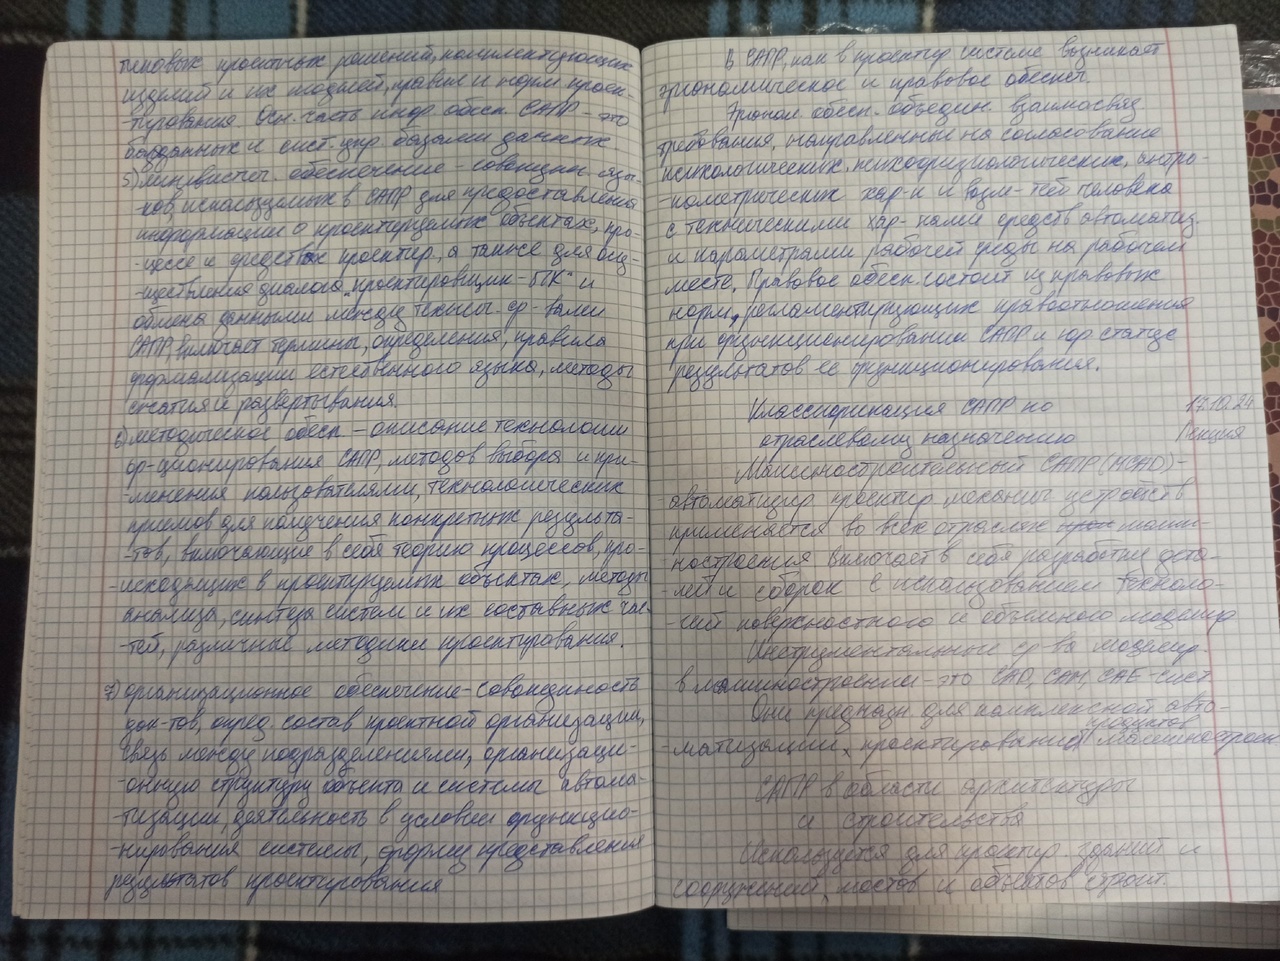 типовых проектных решений, комплектующих
изделий и их моделей, правил и норм проек-
-тирования. Осн. часть инф. обесп. САПР – это
базы данных и сист. упр. базами данных
5) лингвистич. обеспечение – совокупн. язы-
-ков, используемых в САПР для предоставления
информации о проектируемых объектах, про-
-цессе и средствах проектир., а также для осу-
-ществления диалога "проектировщик – ПК" и
обмена данными между технич. ср-вами
САПР, включает термины, определения, правила
формализации естественного языка, методы
сжатия и развертывания.
6) методическое обесп – описание технологии
ф-ционирования САПР, методов выбора и при-
-менения пользователями, технологических
приемов для получения конкретных результа-
-тов, включающие в себя теорию процессов, про-
-исходящих в проектируемых объектах, методы
анализа, синтеза систем и их составных час-
-тей, различные методики проектирования.
7) организационное обеспечение – совокупность
док-тов, опред. состав проектной организации,
связь между подразделениями, организаци-
-онную структуру объекта и системы автома-
-тизации, деятельность в условии функцио-
-нирования системы, форму представления
результатов проектирования
В САПР, как в проектир системе возникает
эргономическое и правовое обеспеч
Эргоном. обесп. объедин. взаимосвяз
требования, направленный на согласование
психологических, психофизиологических, антро-
-пометрических хар-к и возм-тей человека
с техническими хар-ками средств автоматиз
и параметрами рабочей среды на рабочем
месте. Правовое обесп. состоит из правовых
норм, регламентирующих правоотношения
при функционировании САПР и юр статус
результатов ее функционирования.
Классификация САПР по 17.10.24
отраслевому назначению Лекция
Машиностроительный САПР (MCAD) -
автоматизир проектир механич устройств
применяется во всех отраслях машин-
-ностроения Включает в себя разработке дета-
-лей и сборок с использованием техноло-
-гий поверхностного и объемного моделир
Инструментальные ср-ва моделир.
в машиностроении – это CAD, CAM, CAE-сист
Они предназн. для комплексной авто-
продуктов
-матизации проектирования машиностроен
САПР в области архитектуры
и строительства
Используется для проектир. зданий и
сооружений, мостов и объектов строит.